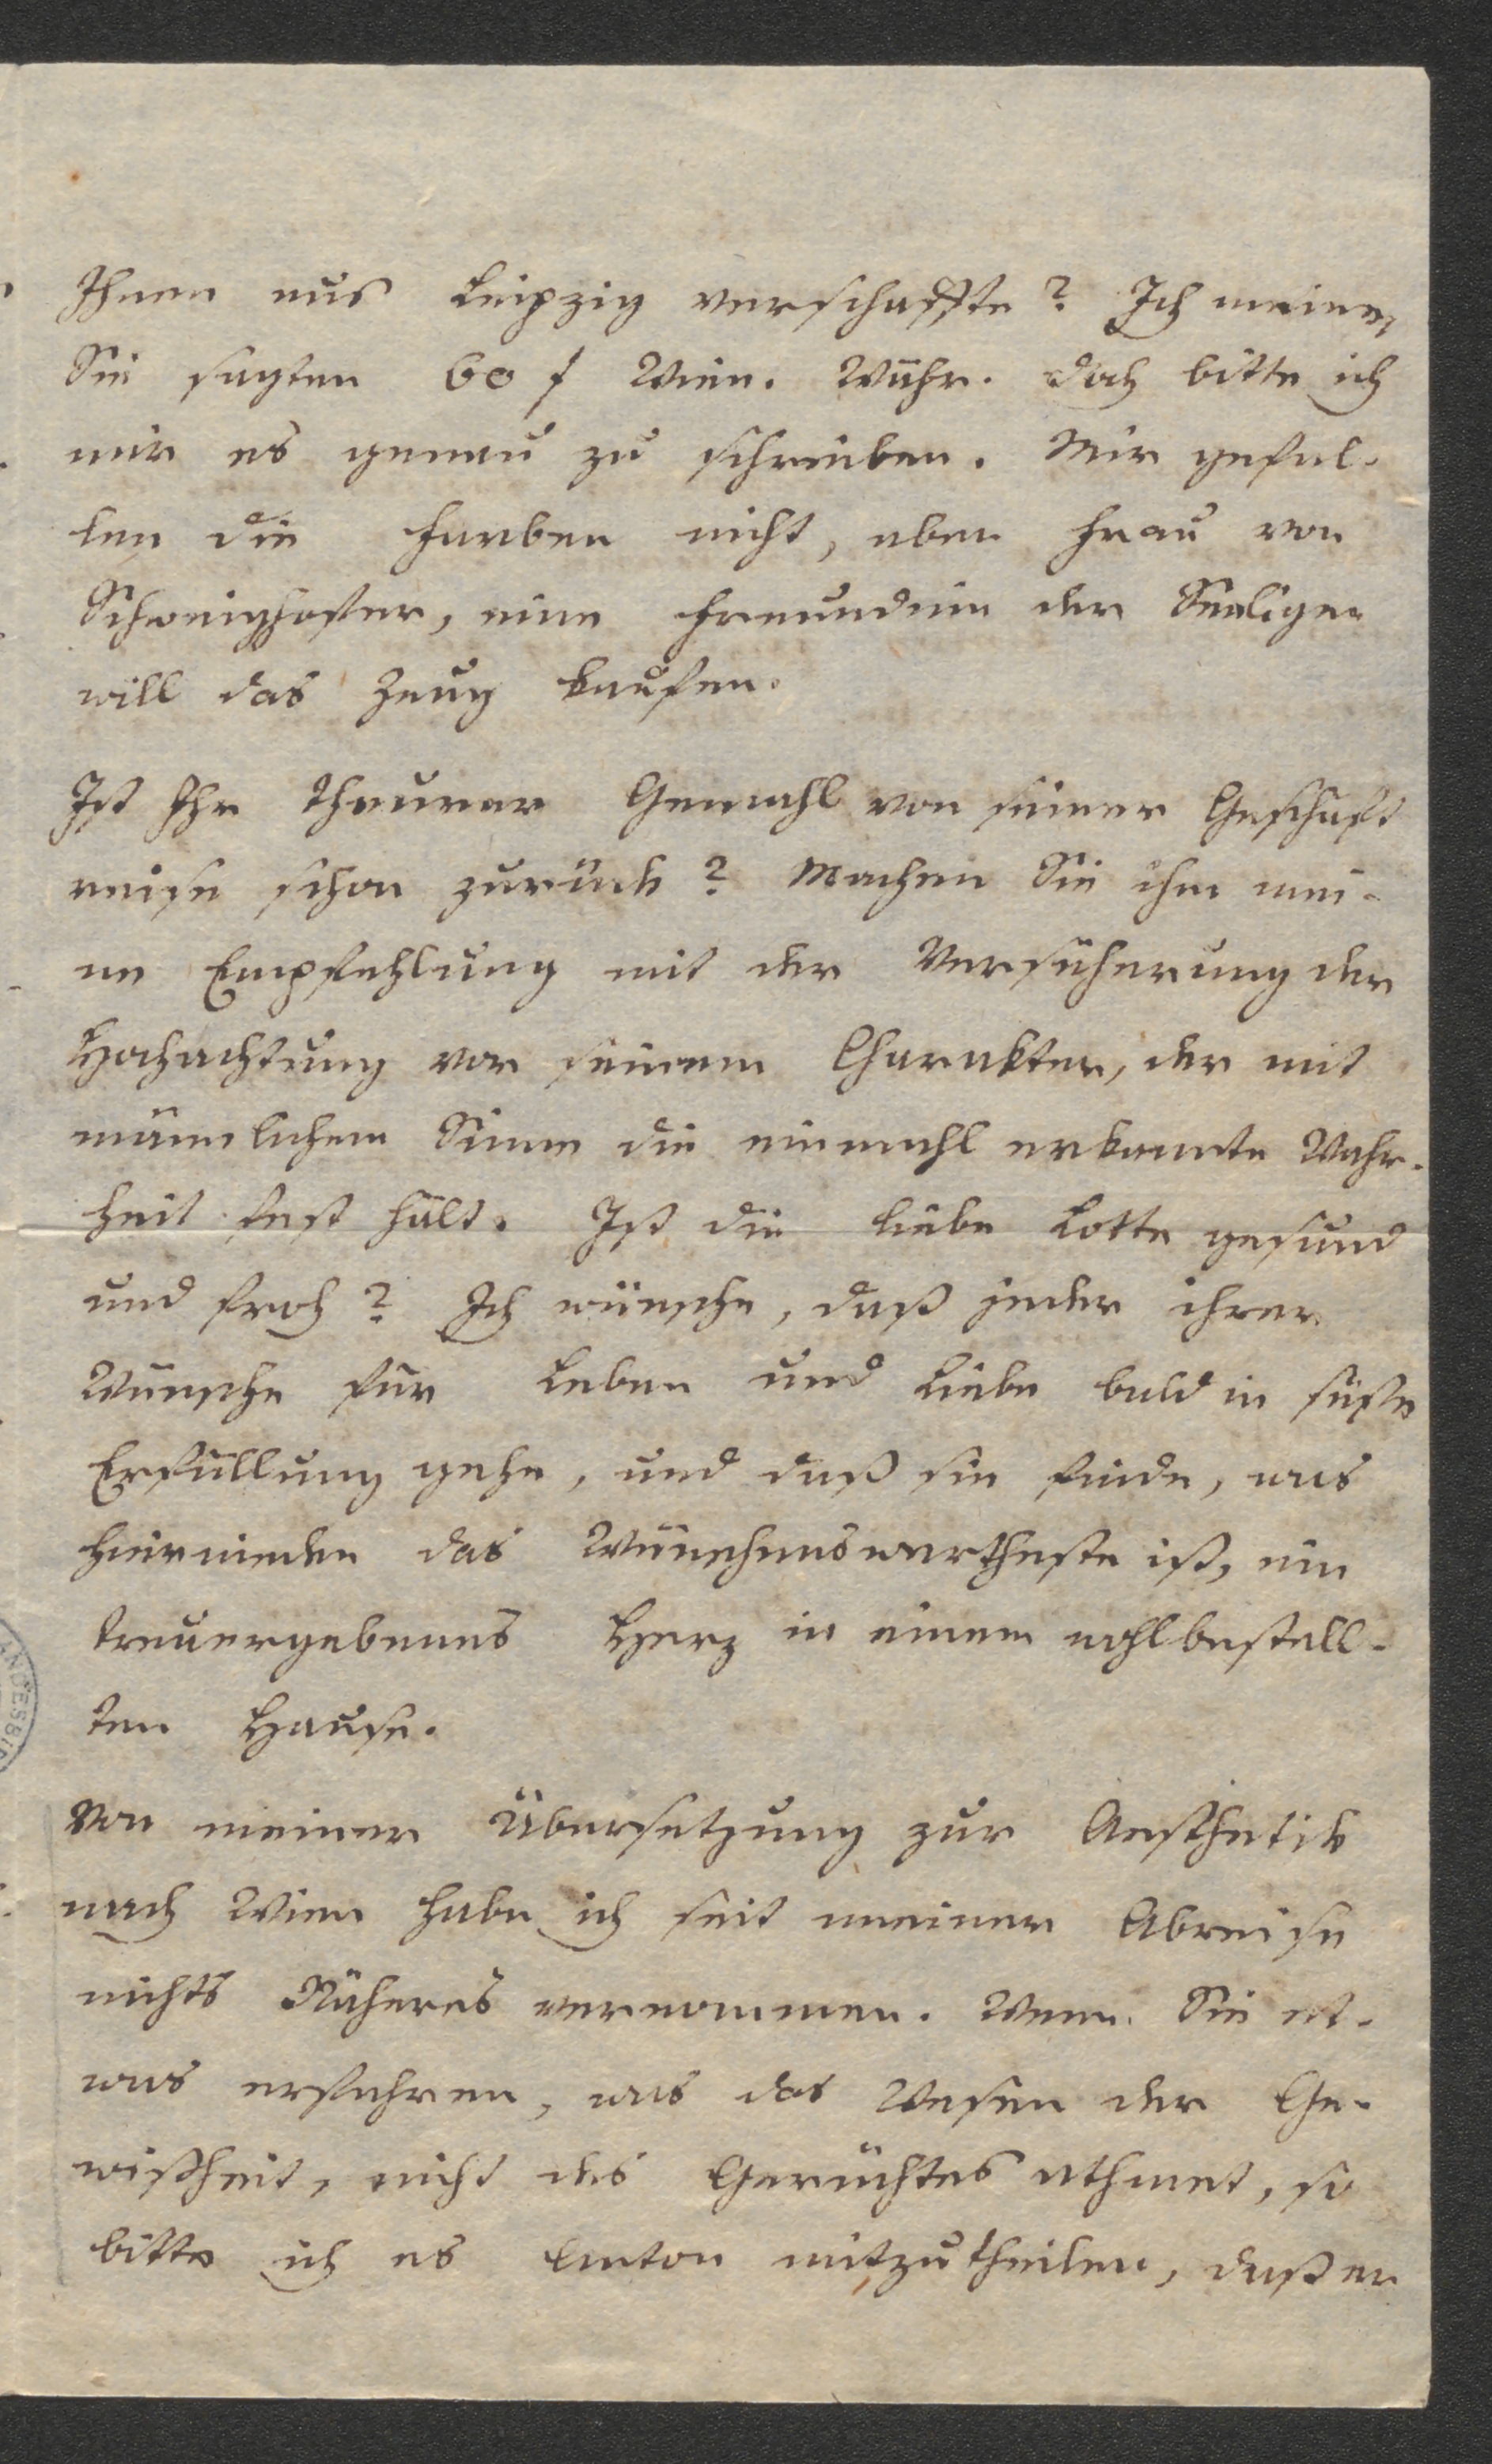 Ihnen aus Leipzig verschaffte? Ich meine,
Sie sagten 60 f Wien. Währ. doch bitte ich
mir es genau zu schreiben. Mir gefal-
len die Farben nicht, aber Frau von
Schweighofer, eine Freundinn der Seeligen
will das Zeug kaufen.
Ist Ihr theurer Gemahl von seiner Geschäft
reise schon zurück? Machen Sie ihm mei-
ne Empfehlung mit der Versicherung der
Hochachtung vor seinem Charakter, der mit
männlichem Sinne die einmahl erkannte Wahr-
heit fest hält. Ist die liebe Lotte gesund
und froh? Ich wünsche, daß jeder ihrer
Wünsche für Leben und Liebe bald in süße
Erfüllung gehe, und daß sie finde, was
hiernieden das Wünschenswertheste ist, ein
treuergebenes Herz in einem wohlbestell-
ten Hause.
Von meiner Übersetzung zur Aesthetik
nach Wien habe ich seit meiner Abreise
nichts Näheres vernommen. Wenn Sie et-
was erfahren, was das Wesen der Ge-
wißheit, nicht des Gerüchtes athmet, so
bitte ich es Anton mitzutheilen, daß er